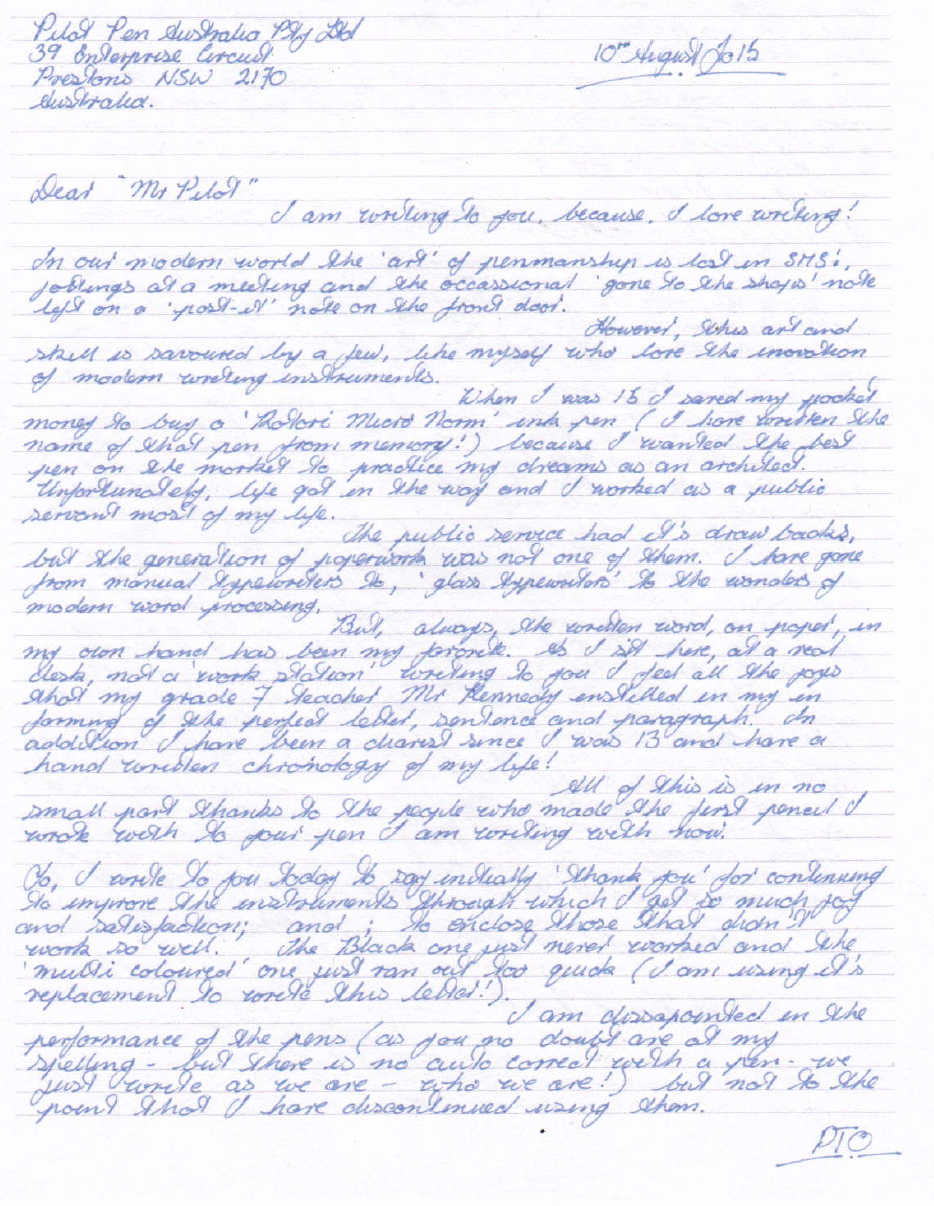 Pilot Pen Australia Pty Ltd
39 Enterprise Circuit
Prestons NSW 2170
Australia.
10th August 2015
Dear "Mr Pilot"
I am writing to you, because, I love writing!
In our modern world the 'art' of penmanship is lost in SMS's,
jottings at a meeting and the occassional 'gone to the shops' note
left on a 'post-it' note on the front door.
However, this art and
skill is savoured by a few, like myself who love the inovation
of modern writing instruments.
When I was 15 I saved my pocket
money to buy a 'Rotori Micro Norm' ink pen (I have written the
name of that pen from memory!) because I wanted the best
pen on the market to practice my dreams as an architect.
Unfortunately, life got in the way and I worked as a public
servant most of my life.
The public service had it's draw backs,
but the generation of paperwork was not one of them. I have gone
from manual typewriters to, 'glass typewriters' to the wonders of
modern word processing.
But, always, the written word, on paper, in
my own hand has been my favorite. As I sit here, at a real
desk, not a 'work station' writing to you I feel all the joys
that my grade 7 teacher Mr Kennedy instilled in my in
forming of the perfect letter, sentence and paragraph. In
addition I have been a diarest since I was 13 and have a
hand written chronology of my life!
All of this is in no
small part thanks to the people who made the first pencil I
wrote with to your pen I am writing with now.
So, I write to you today to say initially 'thank you' for continuing
to improve the instruments through which I get so much joy
and satisfaction; and; to enclose those that didn't
work so well. The Black one just never worked and the
'multi coloured' one just ran out too quick (I am using it's
replacement to write this letter!).
I am dissapointed in the
performance of the pens (as you no doubt are at my
spelling - but there is no auto correct with a pen - we
just write as we are - who we are!) but not to the
point that I have discontinued using them.
PTO